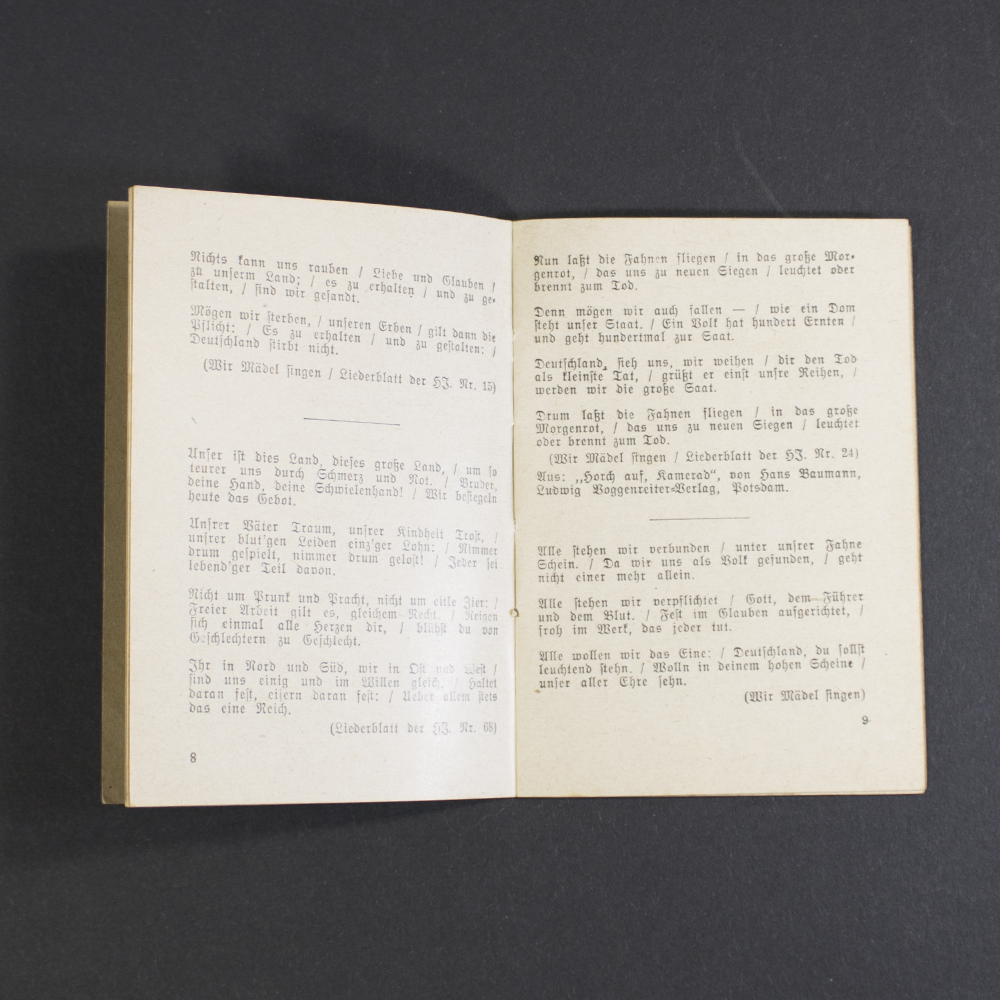 Nichts kann uns rauben / Liebe und Glauben /
zu unserm Land; / es zu erhalten / und zu ge-
stalten, / sind wir gesandt.
Mögen wir sterben, / unseren Erben / gilt dann die
Pflicht: / Es zu erhalten / und zu gestalten: /
Deutschland stirbt nicht.
(Wir Mädel singen / Liederblatt der HJ. Nr. 15)
Unser ist dies Land, dieses große Land, / um so
teurer uns durch Schmerz und Not. / Bruder,
deine Hand, deine Schwielenhand! / Wir besiegeln
heute das Gebot.
Unsrer Väter Traum, unsrer Kindheit Trost, /
unsrer blut'gen Leiden einz'ger Lohn: / Nimmer
drum gespielt, nimmer drum gelost! / Jeder sei
lebend'ger Teil davon.
Nicht um Prunk und Pracht, nicht um eitle Zier: /
Freier Arbeit gilt es, gleichem Recht. / Neigen
sich einmal alle Herzen dir, / blühst du von
Geschlechtern zu Geschlecht.
Ihr in Nord und Süd, wir in Ost und West /
sind uns einig und im Willen gleich. / Haltet
daran fest, eisern daran fest: / Ueber allem stets
das eine Reich.
(Liederblatt der HJ. Nr. 68)
8
Nun laßt die Fahnen fliegen / in das große Mor-
genrot, / das uns zu neuen Siegen / leuchtet oder
brennt zum Tod.
Denn mögen wir auch fallen — / wie ein Dom
steht unser Staat. / Ein Volk hat hundert Ernten /
und geht hundertmal zur Saat.
Deutschland, sieh uns, wir weihen / dir den Tod
als kleinste Tat, / grüßt er einst unsre Reihen, /
werden wir die große Saat.
Drum laßt die Fahnen fliegen / in das große
Morgenrot, / das uns zu neuen Siegen / leuchtet
oder brennt zum Tod.
(Wir Mädel singen / Liederblatt der HJ. Nr. 24)
Aus: „Horch auf, Kamerad", von Hans Baumann,
Ludwig Voggenreiter-Verlag, Potsdam.
Alle stehen wir verbunden / unter unsrer Fahne
Schein. / Da wir uns als Volk gefunden, / geht
nicht einer mehr allein.
Alle stehen wir verpflichtet / Gott, dem Führer
und dem Blut. / Fest im Glauben aufgerichtet, /
froh im Werk, das jeder tut.
Alle wollen wir das Eine: / Deutschland, du sollst
leuchtend stehn. / Wolln in deinem hohen Scheine /
unser aller Ehre sehn.
(Wir Mädel singen)
9